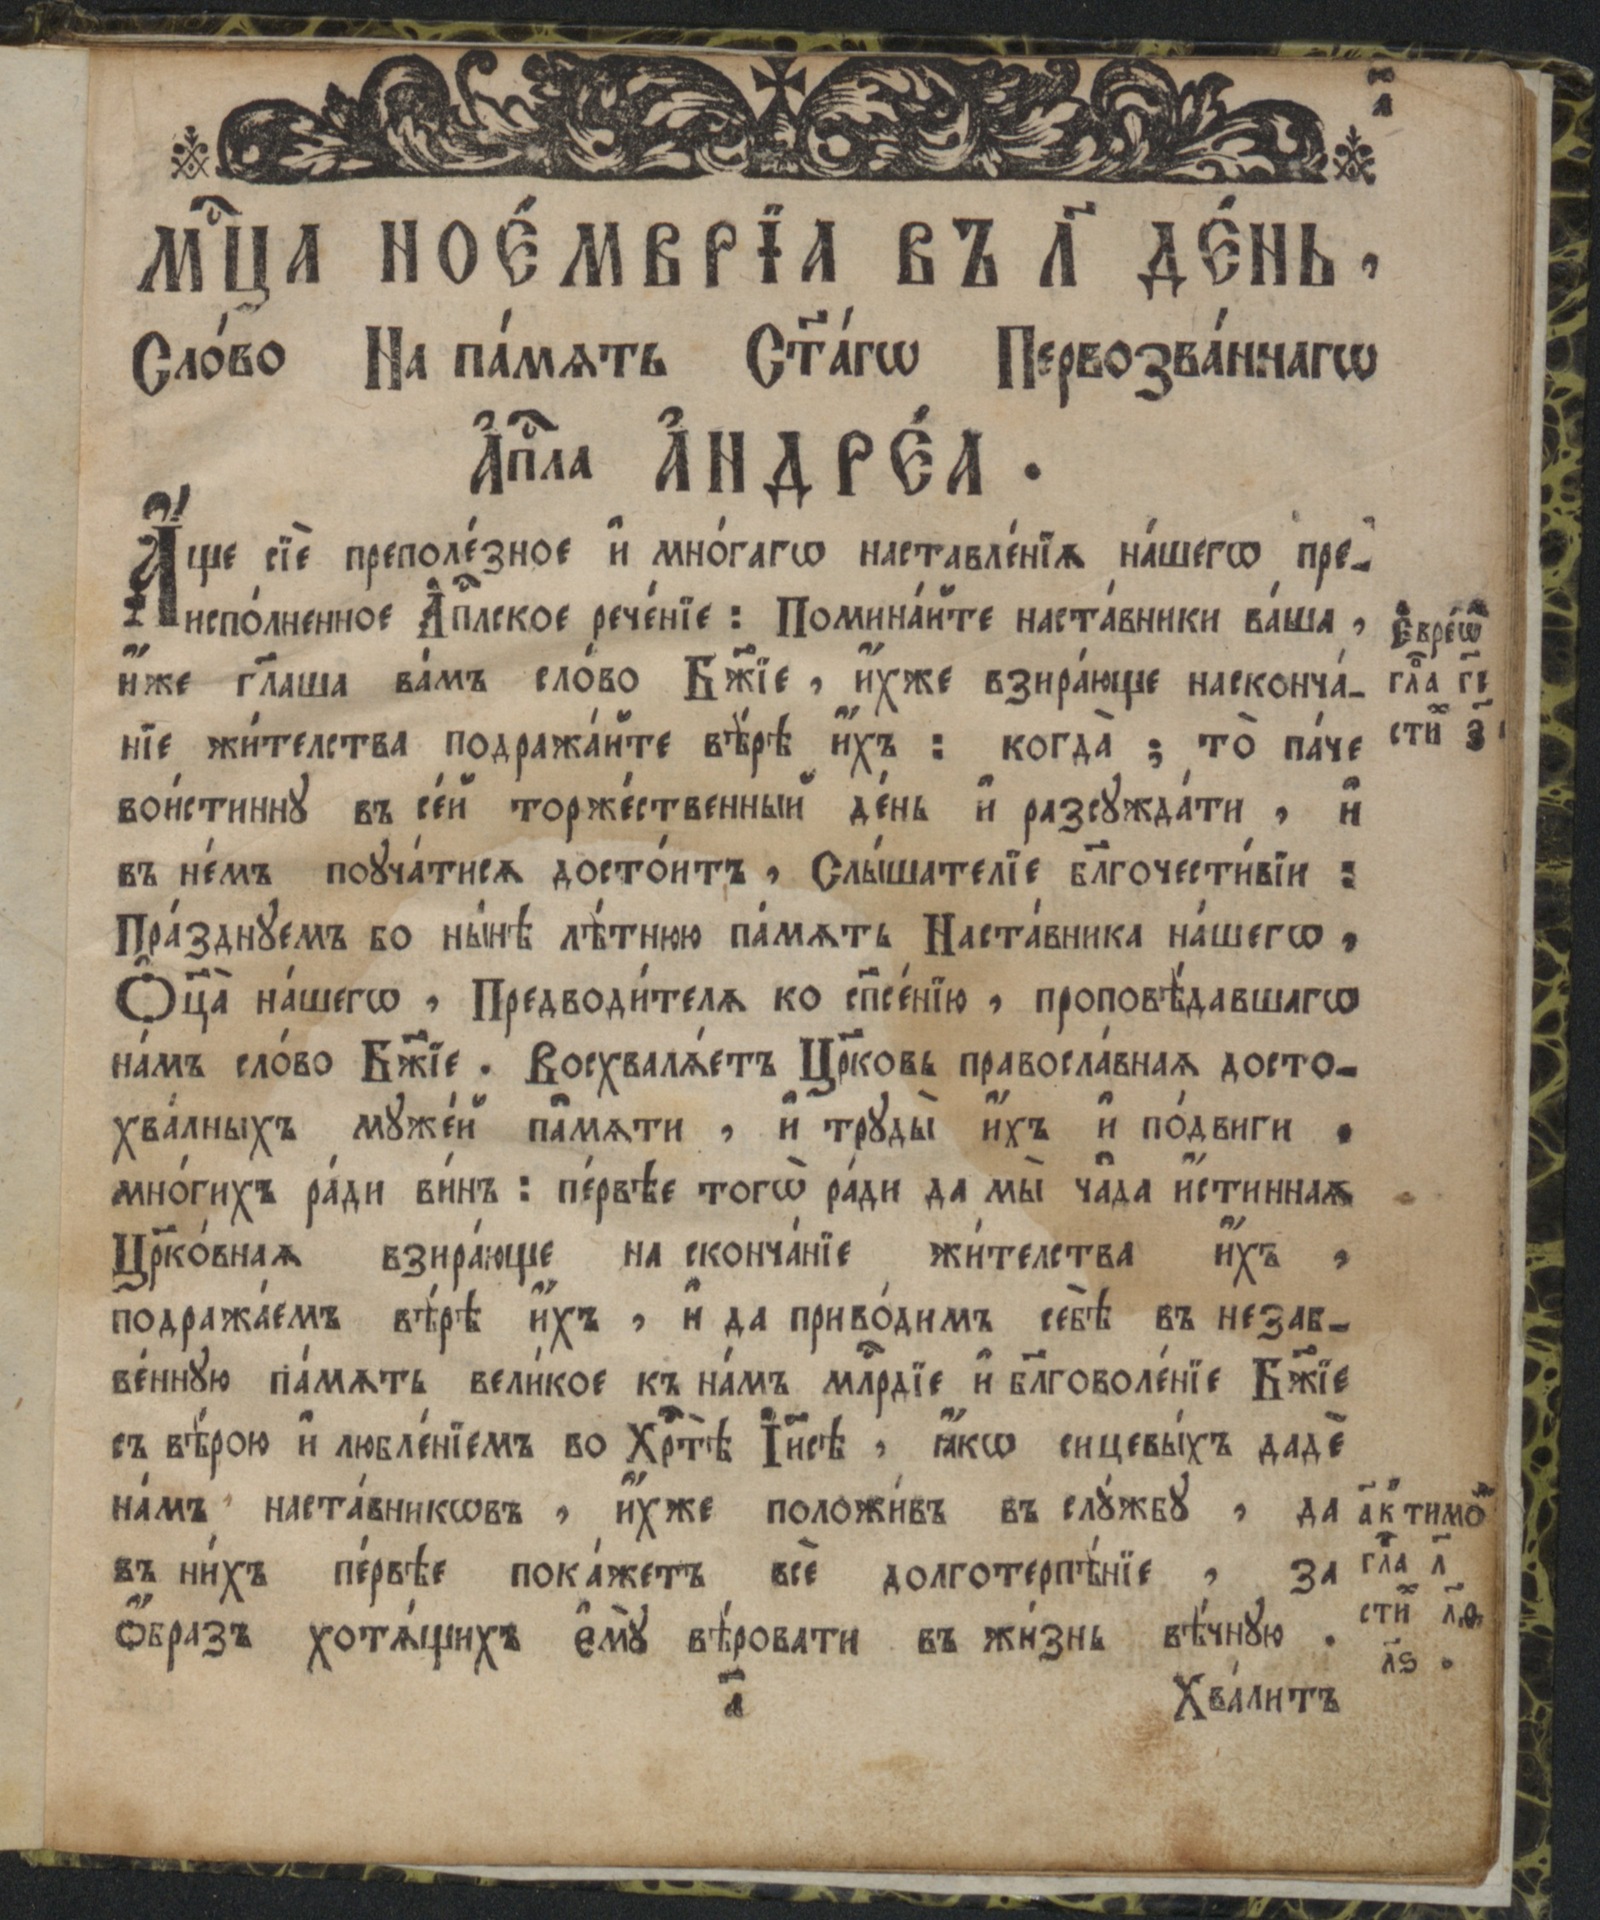 а҃
Мц҇а ноемврїа въ л҃ де́нь,
Сло́во На па́мѧть Ст҃а́гѡ Первозва́ннагѡ
А҆пⷭ҇ла А҆ндре́а.
А҆́ще сїѐ преполе́зное и҆ мно́гагѡ наставле́нїѧ на́шегѡ пре-
испо́лненное А҆пⷭ҇лское рече́нїе: Помина́йте наста́вники ва́ша,
и҆́же гл҃аша ва́мъ сло́во Бж҃їе, и҆́хже взира́юще насконча́-
нїе жи́телства подража́йте вѣ́рѣ и҆́хъ: когда̀; то̀ па́че
вои́стиннꙋ въ се́й торже́ственный де́нь и҆ разсꙋжда́ти, и҆
въ не́мъ поꙋча́тисѧ досто́итъ, Слы́шателїе бл҃гочести́вїи:
Пра́зднꙋемъ бо ны́нѣ лѣ́тнюю па́мѧть Наста́вника на́шегѡ,
Ѻ҆ц҃а̀ на́шегѡ, Предводи́телѧ ко сп҃се́нїю, проповѣ́давшагѡ
на́мъ сло́во Бж҃їе. Восхвалѧ́етъ Цр҃ковь правосла́внаѧ досто-
хва́лныхъ мꙋже́й па́мѧти, и҆ трꙋды̀ и҆́хъ и҆ по́двиги.
мно́гихъ ра́ди ви́нъ: пе́рвѣе тогѡ̀ ра́ди да мы̀ ча̑да и҆́стиннаѧ
Цр҃ко́внаѧ взира́юще на сконча́нїе жи́телства и҆́хъ,
подража́емъ вѣ́рѣ и҆́хъ, и҆ да приво́димъ себѣ̀ въ незав-
ве́ннꙋю па́мѧть вели́кое къ на́мъ млⷭ҇рдїе и҆ бл҃говоле́нїе Бж҃їе
съ вѣ́рою и҆ любле́нїемъ во Хрⷭ҇тѣ̀ І҆и҃сѣ, ꙗ҆́кѡ сицевы́хъ дадѐ
на́мъ наста́вникѡвъ, и҆́хже положи́въ въ слꙋ́жбꙋ, да
въ ни́хъ пе́рвѣе пока́жетъ всѐ долготерпѣ́нїе, за
Ѻ҆́бразъ хотѧ́щихъ є҆мꙋ̀ вѣ́ровати въ жи́знь вѣ́чнꙋю.
а҃
Хва́литъ
Є҆вре́ѡⷨ
гл҃а г҃і
стиⷯ з҃
а҃ к тимоⷴ
гл҃а л҃
стиⷯ л҃ѳ,
л҃ѕ.